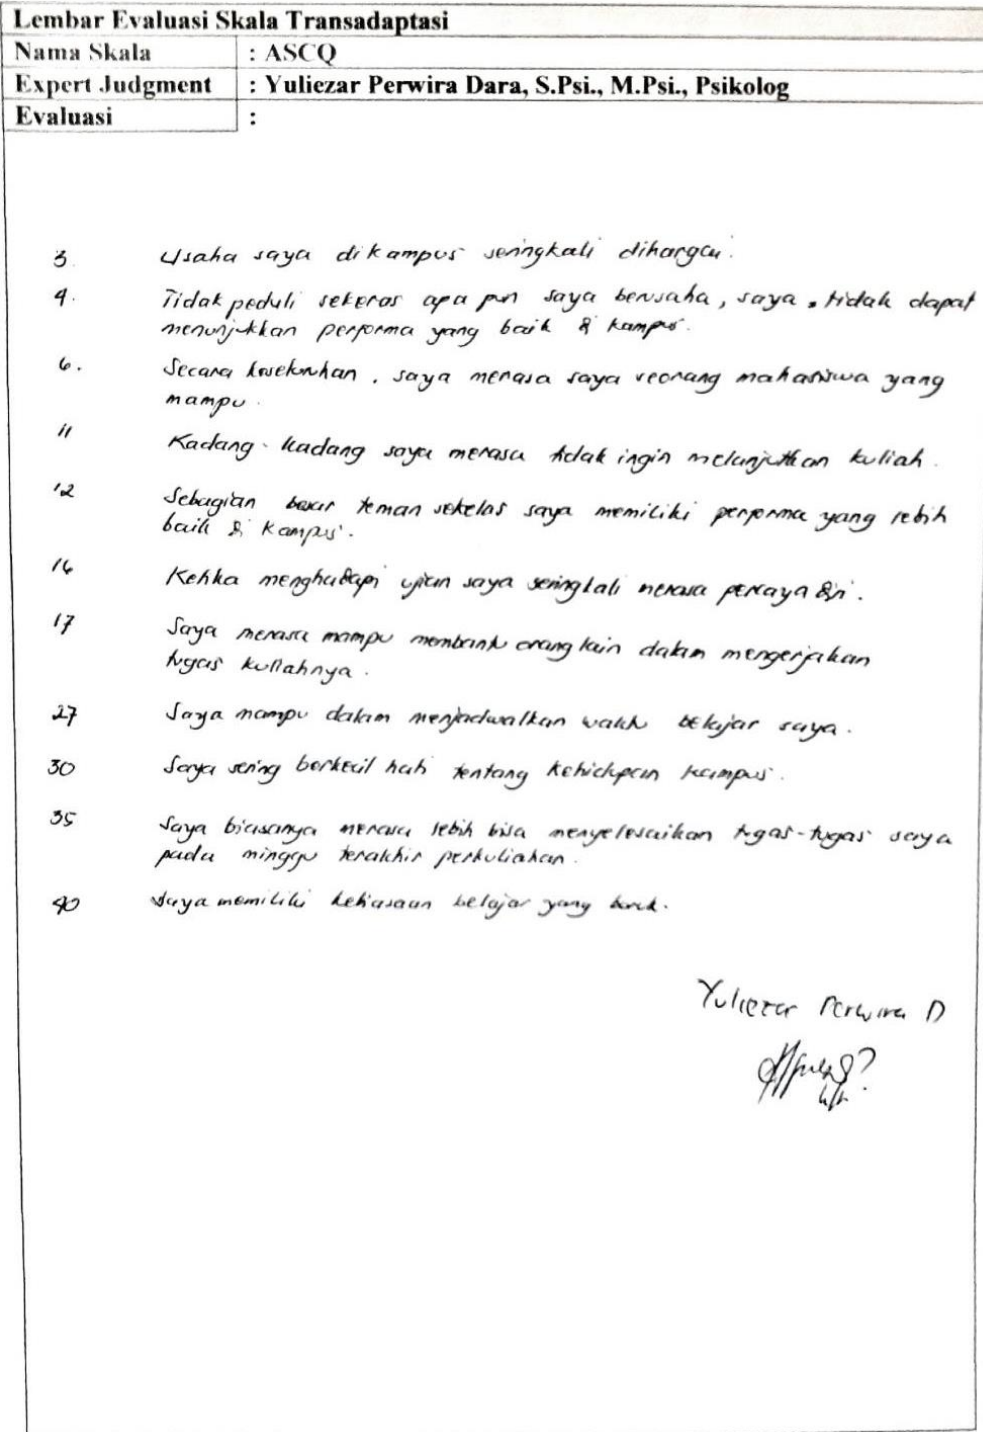 Lembar Evaluasi Skala Transadaptasi
Nama Skala : ASCQ
Expert Judgment : Yuliezar Perwira Dara, S.Psi., M.Psi., Psikolog
Evaluasi :
3. Usaha saya dikampus seringkali dihargai.
4. Tidak peduli sekeras apa pun saya berusaha, saya tidak dapat
menunjukkan performa yang baik di kampus.
6. Secara keseluruhan, saya merasa saya seorang mahasiswa yang
mampu.
11 Kadang-kadang saya merasa tidak ingin melanjutkan kuliah.
12 Sebagian besar teman sekelas saya memiliki performa yang lebih
baik di kampus.
16 Ketika menghadapi ujian saya seringkali merasa percaya diri.
17 Saya merasa mampu membantu orang lain dalam mengerjakan
tugas kuliahnya.
27 Saya mampu dalam menjadwalkan waktu belajar saya.
30 Saya sering berkecil hati tentang kehidupan kampus.
35 Saya biasanya merasa lebih bisa menyelesaikan tugas-tugas saya
pada minggu terakhir perkuliahan.
40 Saya memiliki kebiasaan belajar yang baik.
Yuliezar Perwira D